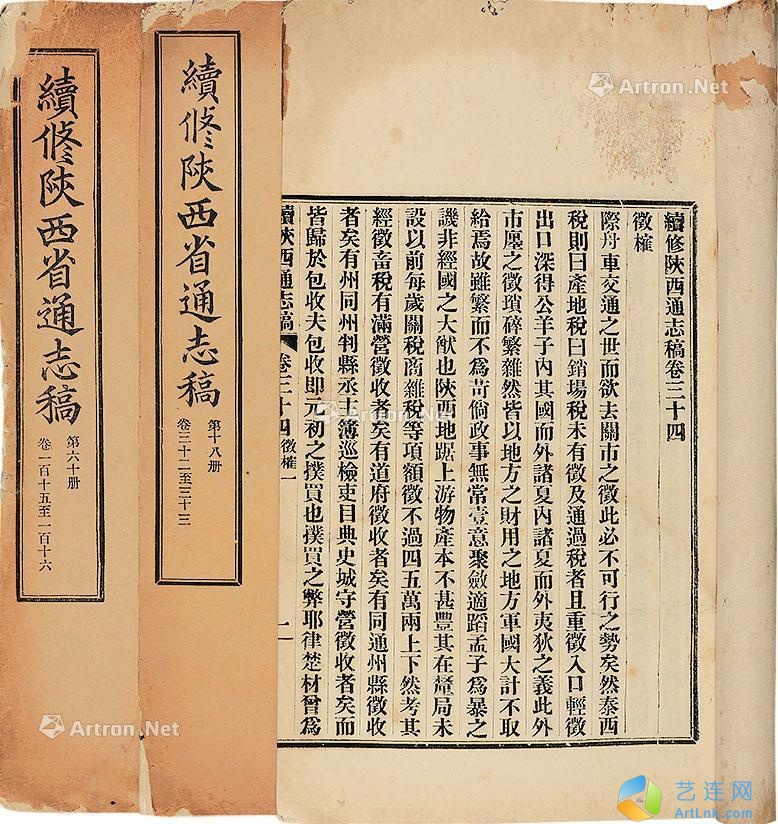 續修陜西通志稿卷三十四
徵榷
際舟車交通之世而欲去關市之徵此必不可行之勢矣然泰西
稅則曰產地稅曰銷場稅未有徵及通過稅者且重徵入口輕徵
出口深得公羊子內其國而外諸夏內諸夏而外夷狄之義此外
市廛之徵瑣碎繁雜然皆以地方之財用之地方軍國大計不取
給焉故雖繁而不為苛倘政事無常壹意聚斂適蹈孟子為暴之
譏非經國之大猷也陜西地踞上游物產本不甚豐其在釐局未
設以前每歲關稅商雜稅等項額徵不過四五萬兩上下然考其
經徵畜稅有滿營徵收者矣有道府徵收者矣有同通州縣徵收
者矣有州同州判縣丞主簿巡檢吏目典史城守營徵收者矣而
皆歸於包收夫包收即元初之撲買也撲買之弊耶律楚材曾為
續陜西通志稿 卷三十四 徵榷一
一
續修陜西省通志稿
第十八册
卷三十二至三十三
續修陜西省通志稿
第六十册
卷一百十五至一百十六
Artron.Net
Artron.Net
Artron.Net
Artron.Net
艺连网
ArtLnk.com